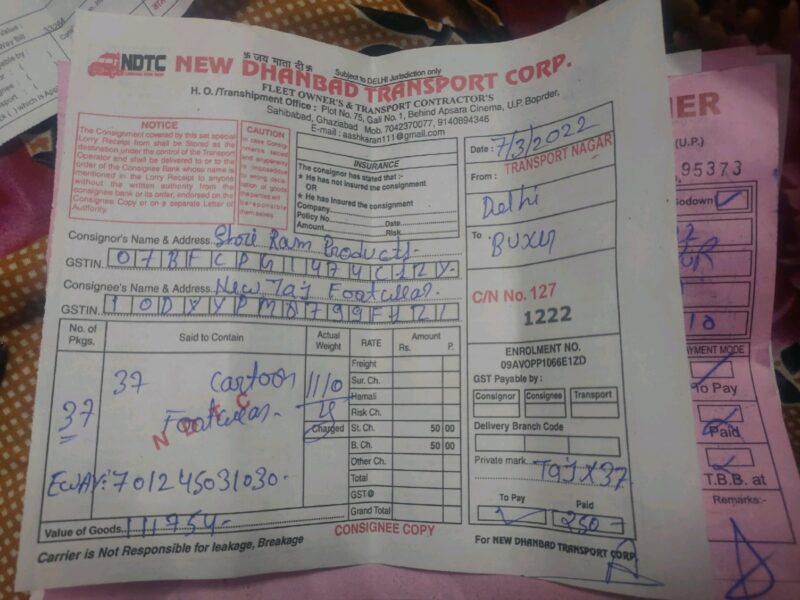 卐 जय माता दी 卐
Subject to DELHI Jurisdiction only
NDTC NEW DHANBAD TRANSPORT CORP.
FLEET OWNER'S & TRANSPORT CONTRACTOR'S
H. O./Transhipment Office : Plot No. 75, Gali No. 1, Behind Apsara Cinema, U.P. Boprder,
Sahibabad, Ghaziabad Mob. 7042370077, 9140894346
E-mail : aashkaran111@gmail.com
NOTICE
The Consignment covered by this set special
Lorry Receipt from shall be Stored as the
destination under the control of the Transport
Operator and shall be delivered to or to the
order of the Consignee Bank whose name is
mentioned in the Lorry Receipt to anyone
without the written authority from the
consignee bank or its order, endorsed on the
Consignee Copy or on a separate Letter of
Authority.
CAUTION
INSURANCE
The consignor has stated that :-
★ He has not insured the consignment
OR
★ He has insured the consignment
Company
Policy No Date
Amount Risk
Date : 7/3/2022
TRANSPORT NAGAR
From :
Delhi
To
BUXUR
Consignor's Name & Address Shri Ram Products
GSTIN.
Consignee's Name & Address New Taj Footwear
GSTIN.
C/N No. 127
1222
No. of Pkgs.
Said to Contain
Actual Weight
RATE
Amount
Rs. P.
37
37 Cartoon
Footwear
1110
Charged
Freight
Sur. Ch.
Hamali
Risk Ch.
St. Ch. 50 00
B. Ch. 50 00
Other Ch.
Total
GST@
Grand Total
Eway: 701245031030
ENROLMENT NO.
09AVOPP1066E1ZD
GST Payable by :
Consignor Consignee Transport
Delivery Branch Code
Private mark TAJ X 37
To Pay Paid
250
Value of Goods 111754
CONSIGNEE COPY
Carrier is Not Responsible for leakage, Breakage
For NEW DHANBAD TRANSPORT CORP.
(U.P.)
95373
Godown
PAYMENT MODE
To Pay
Paid
T.B.B. at
Remarks:-